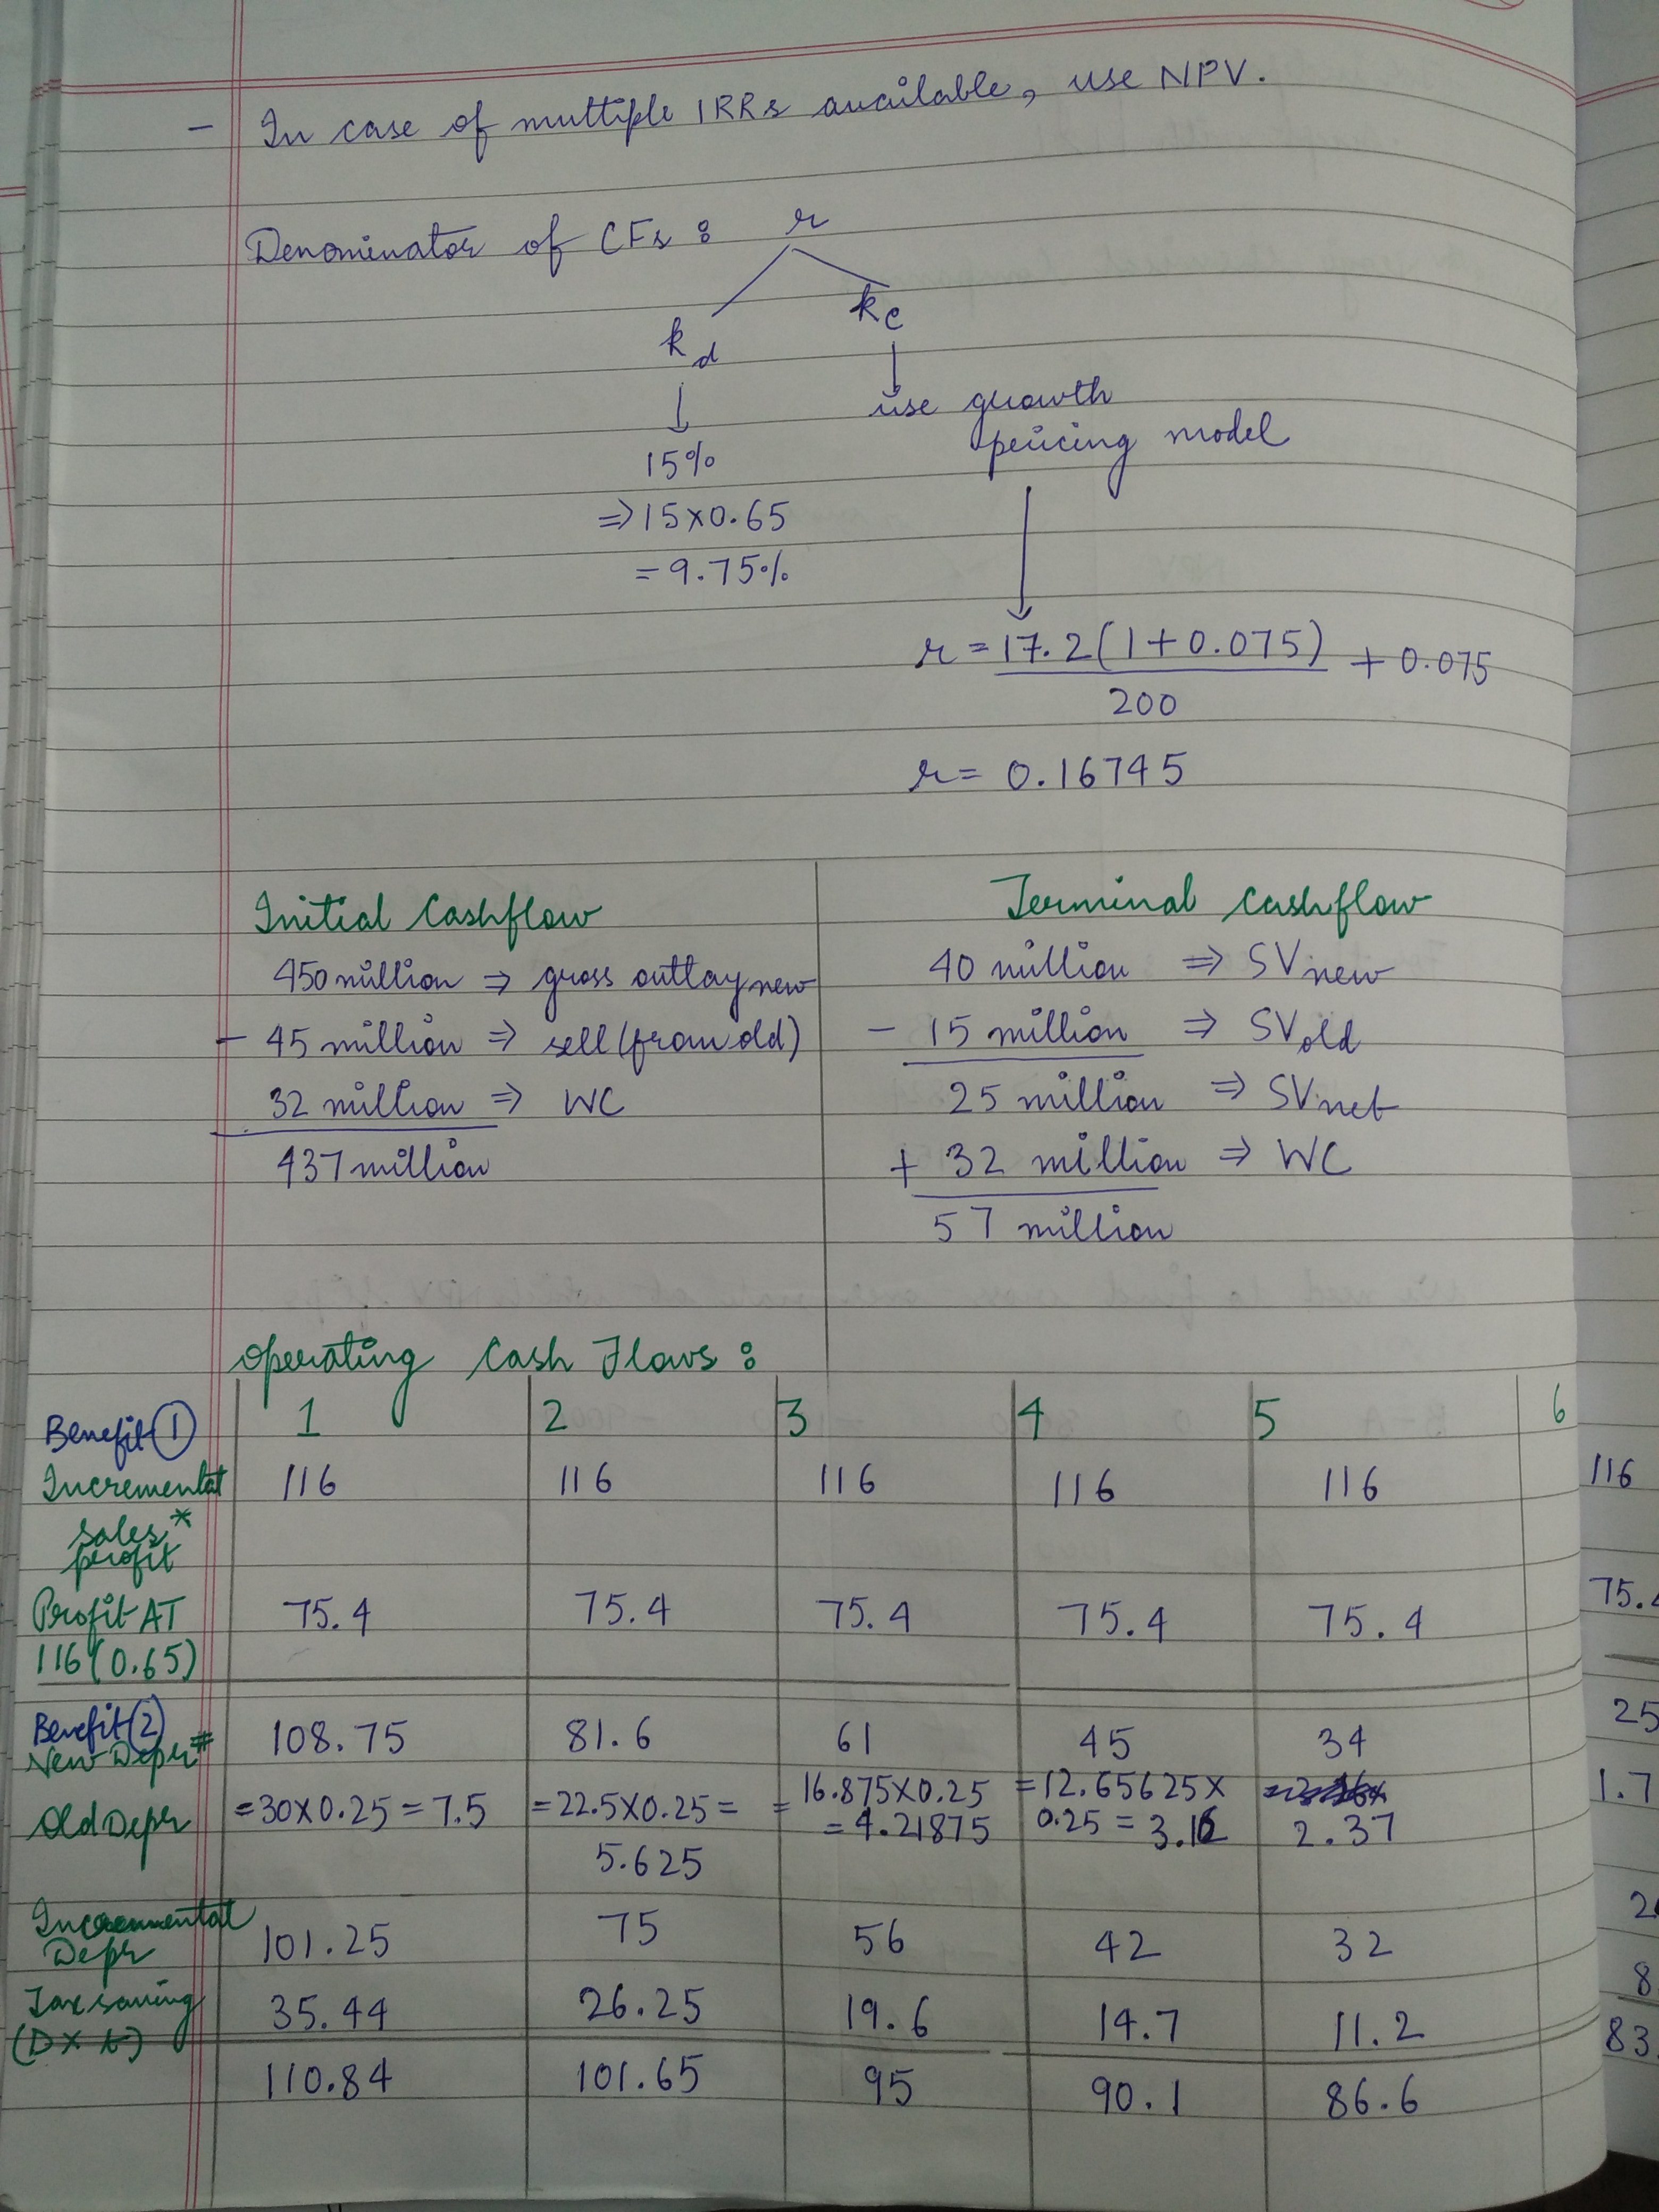 - In case of multiple IRRs available, use NPV.
Denominator of CFs : r
kd ke
↓ ↓
15% use growth pricing model
⇒ 15×0.65
= 9.75%
r = 17.2(1+0.075) + 0.075
200
r = 0.16745
Initial Cashflow
450 million ⇒ gross outlay new
- 45 million ⇒ sell (from old)
32 million ⇒ WC
437 million
Terminal cashflow
40 million ⇒ SVnew
- 15 million ⇒ SVold
25 million ⇒ SVnet
+ 32 million ⇒ WC
57 million
Operating Cash Flows :
Benefit ① 1 2 3 4 5 6
Incremental 116 116 116 116 116 116
sales *
profit
Profit AT 75.4 75.4 75.4 75.4 75.4 75.
116(0.65)
Benefit (2)
New Depr # 108.75 81.6 61 45 34 25
Old Depr = 30×0.25 = 7.5 = 22.5×0.25 = 5.625 = 16.875×0.25 = 4.21875 = 12.65625× 0.25 = 3.16 2.37 1.7
Incremental
Depr 101.25 75 56 42 32 2
Tax saving 35.44 26.25 19.6 14.7 11.2 8
(D×t)
110.84 101.65 95 90.1 86.6 83.